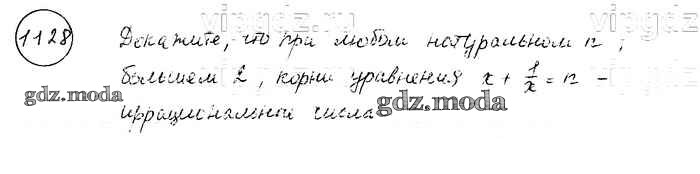 vipgdz.ru vipgdz.ru
1128 Докажите, что при любом натуральном n,
большем 2, корни уравнения x + 1/x = n -
gdz.moda gdz.moda
иррациональные числа gdz.moda